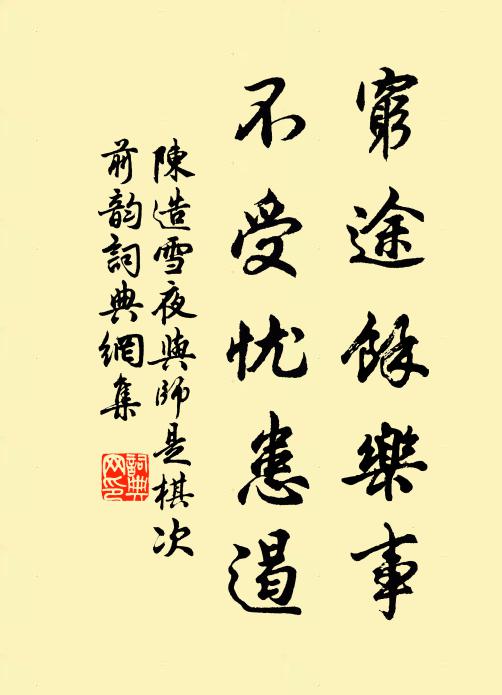 窮途餘樂事
不受忧患遏
陳造雪夜與師是棋次
前韵詞典網集
詞典网印